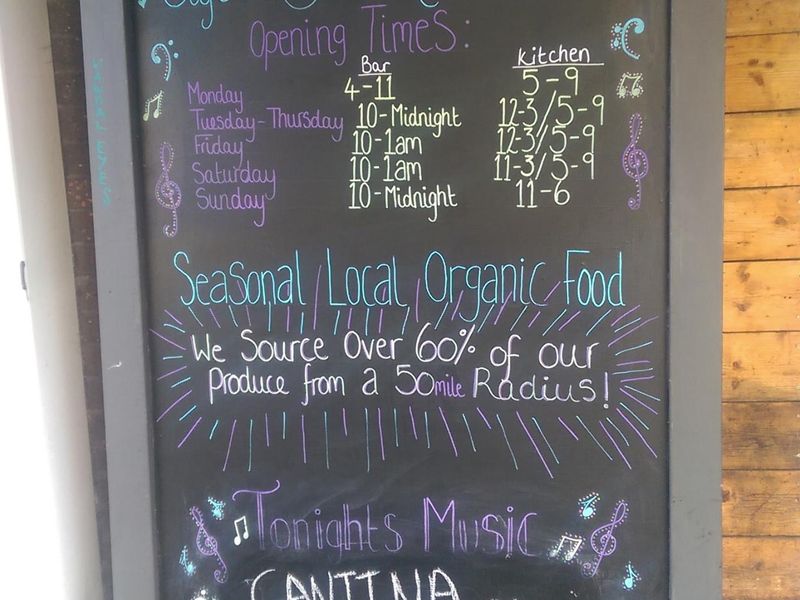 Opening Times:
Bar Kitchen
Monday 4-11 5-9
Tuesday-Thursday 10-Midnight 12-3/5-9
Friday 10-1am 12-3/5-9
Saturday 10-1am 11-3/5-9
Sunday 10-Midnight 11-6
Seasonal Local Organic Food
We Source Over 60% of our
Produce from a 50mile Radius!
Tonights Music
CANTINA